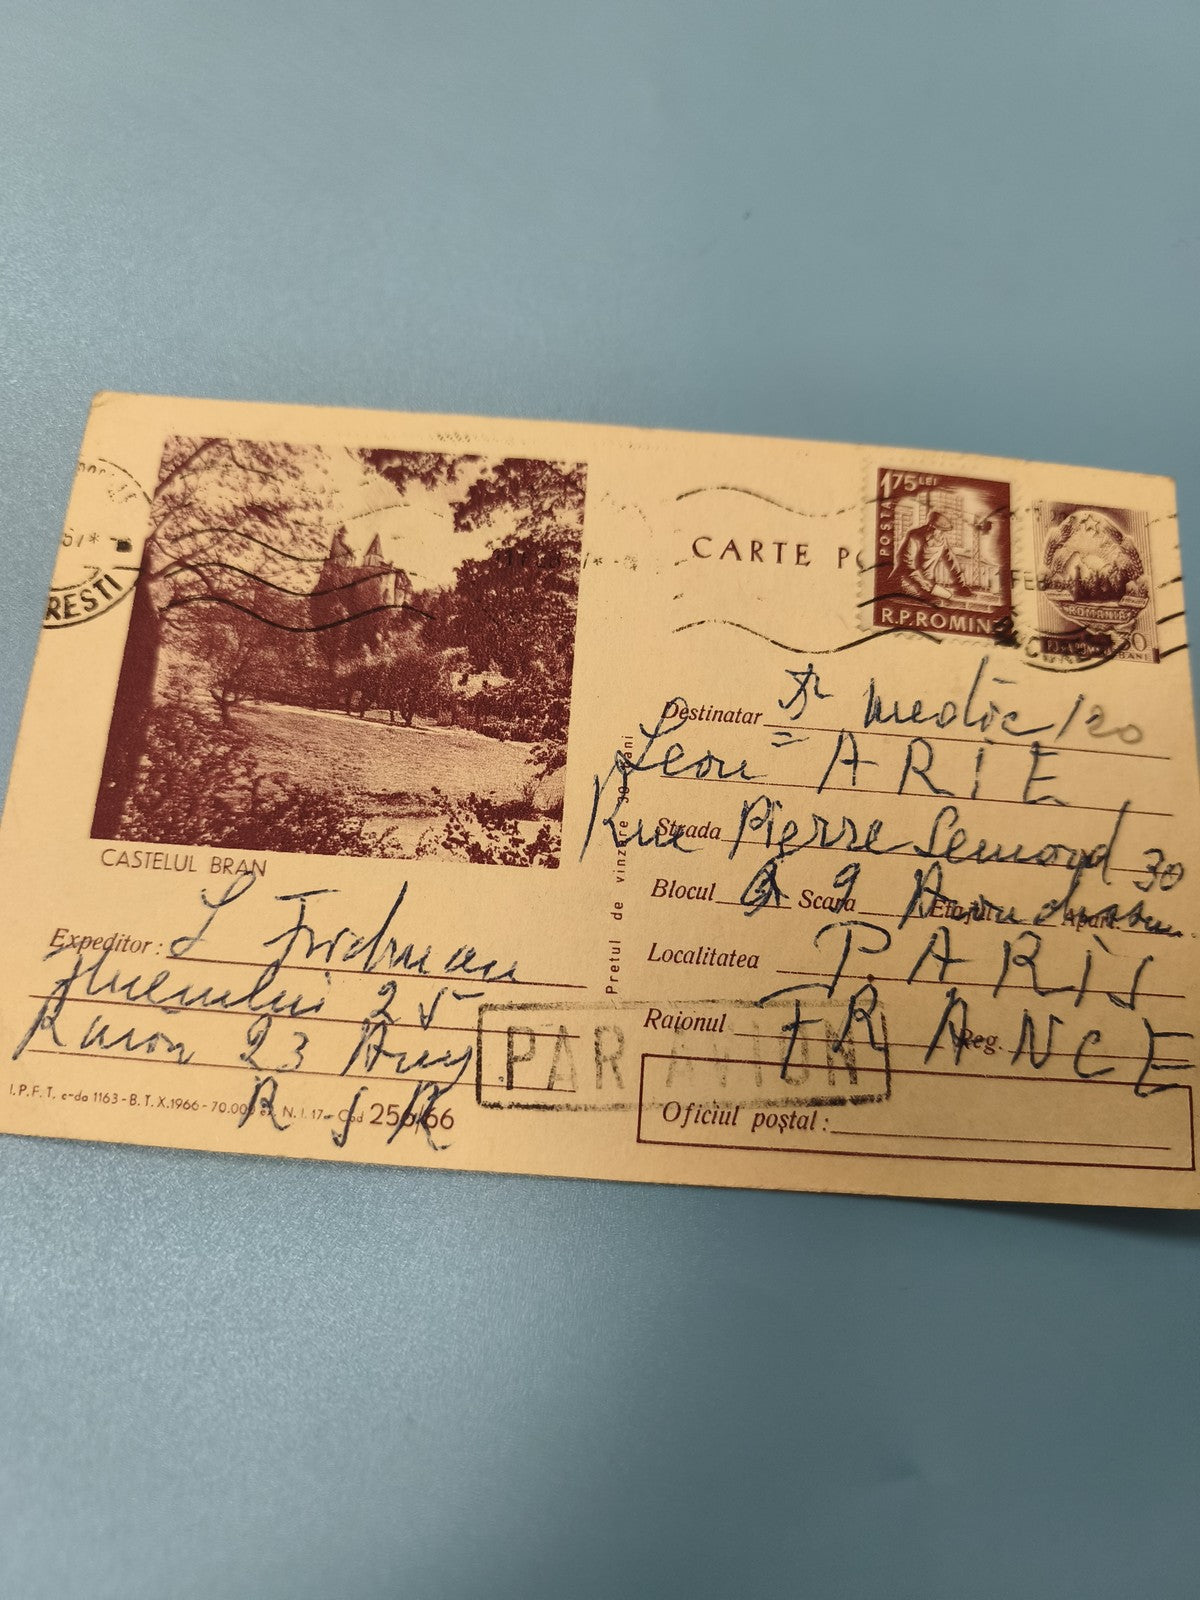 RESTI
67*
CARTE P
175 LEI
POSTA
R.P.ROMIN
FEB
ROMANIA
30
BANI
CASTELUL BRAN
Destinatar Dr medic
Leon ARIE
Strada Rue Pierre Semard 30
Blocul 9 Scara Etajul Apart.
Localitatea PARIS
Raionul FRANCE Reg.
Oficiul poștal:
Pretul de vinzare 30 bani
Expeditor: L Fridman
25
Raion 23 Aug
R S R
PAR AVION
I.P.F.T. c-da 1163-B.T.X.1966-70.000 ex. N.I.17-Cod 256/66